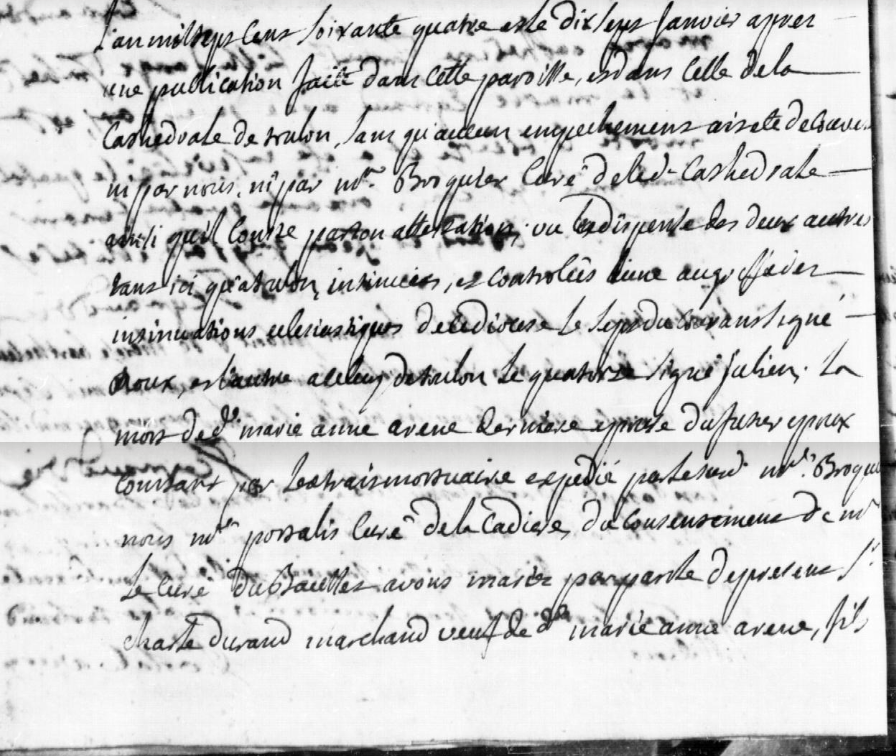 L'an mil sept cens soixante quatre et le dix sept janvier apres
une publication faitte dans cette paroisse, et dans celle de la
Cathedrale de toulon, sans qu'aucun empechement ait ete decouvert
ni par nous, ni par mre Broquier Curé de lad. Cathedrale
ainsi qu'il Conste par son attestation, vu la dispense des deux autres
tant ici qu'a toulon, insinuées, et Controlées l'une au greffe des
insinuations eclesiastiques de ce diocese Le sept du Courant signé
Roux, et l'autre a celuy de toulon Le quatorze signé julien. La
mort de dlle marie anne arene derniere epouse du futur epoux
Constant par L'extrait mortuaire expedié par le susd. mre Broquier
nous mre portalis Curé de la Cadiere, du Consentement de mr
Le Curé du Bausset avons mariez par parole de present Sr
charle durand marchand veuf de dlle marie anne arene, fils